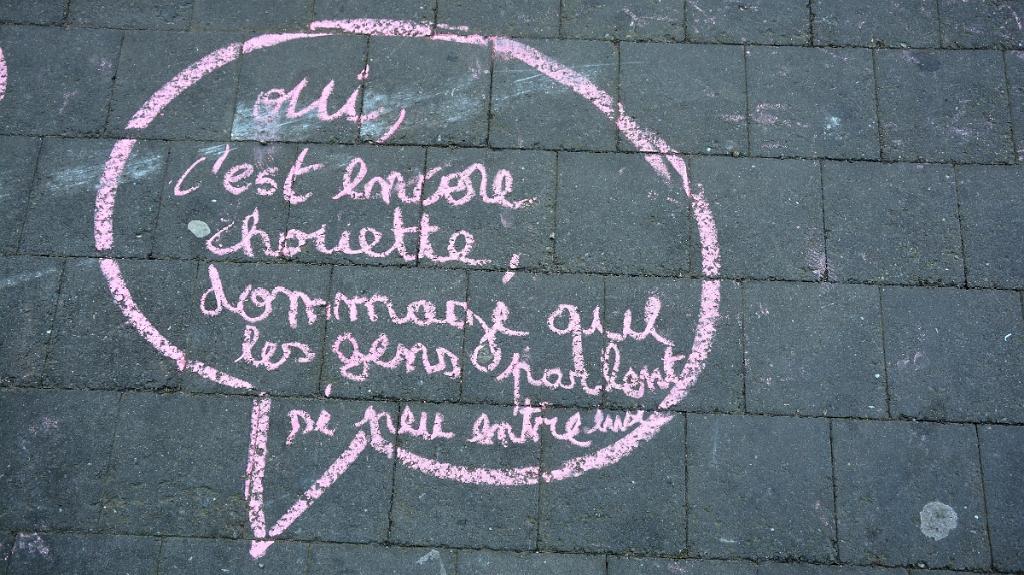 oui,
c'est encore
chouette,
dommage que
les gens parlent
si peu entre eux